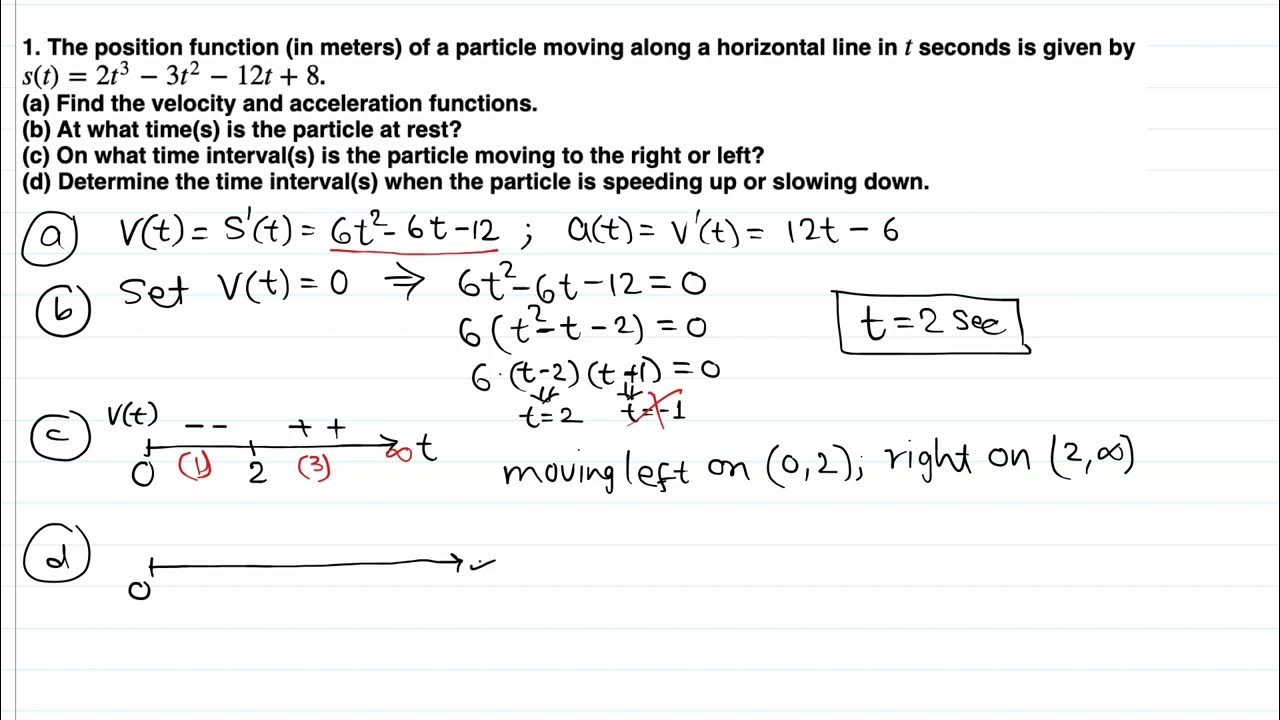 1. The position function (in meters) of a particle moving along a horizontal line in t seconds is given by
s(t) = 2t³ − 3t² − 12t + 8.
(a) Find the velocity and acceleration functions.
(b) At what time(s) is the particle at rest?
(c) On what time interval(s) is the particle moving to the right or left?
(d) Determine the time interval(s) when the particle is speeding up or slowing down.
(a) V(t) = S'(t) = 6t² - 6t - 12 ; a(t) = V'(t) = 12t - 6
(b) Set V(t) = 0 ⇒ 6t² - 6t - 12 = 0
6(t² - t - 2) = 0
t = 2 sec
6·(t-2)(t+1) = 0
⇓ ⇓
t = 2 t = -1
(c) V(t) - - + +
0 (1) 2 (3) ∞ t
moving left on (0,2); right on (2,∞)
(d)
0